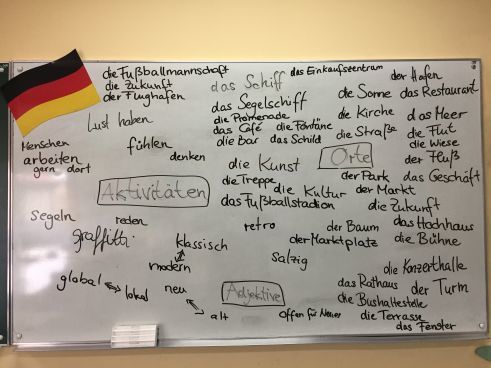 die Fußballmannschaft
die Zukunft
der Flughafen
das Schiff
das Einkaufszentrum
der Hafen
das Segelschiff
die Sonne
das Restaurant
Lust haben
die Promenade
die Kirche
das Meer
das Café
die Fontäne
die Straße
die Flut
die Bar
das Schild
die Wiese
Menschen
fühlen
arbeiten
denken
die Kunst
Orte
der Fluß
gern
dort
die Treppe
der Park
das Geschäft
Aktivitäten
die Kultur
der Markt
das Fußballstadion
die Zukunft
Segeln
reden
retro
der Baum
das Hochhaus
graffiti
klassisch
der Marktplatz
die Bühne
modern
Salzig
die Konzerthalle
global
lokal
neu
Adjektive
das Rathaus
der Turm
die Bushaltestelle
alt
Offen für Neues
die Terrasse
das Fenster